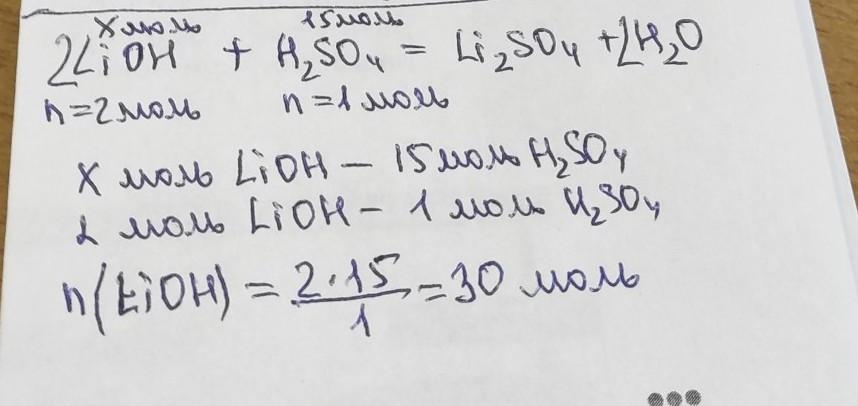 x моль 15 моль
2LiOH + H₂SO₄ = Li₂SO₄ + 2H₂O
n = 2 моль n = 1 моль
x моль LiOH – 15 моль H₂SO₄
2 моль LiOH – 1 моль H₂SO₄
n(LiOH) = 2·15/1 = 30 моль